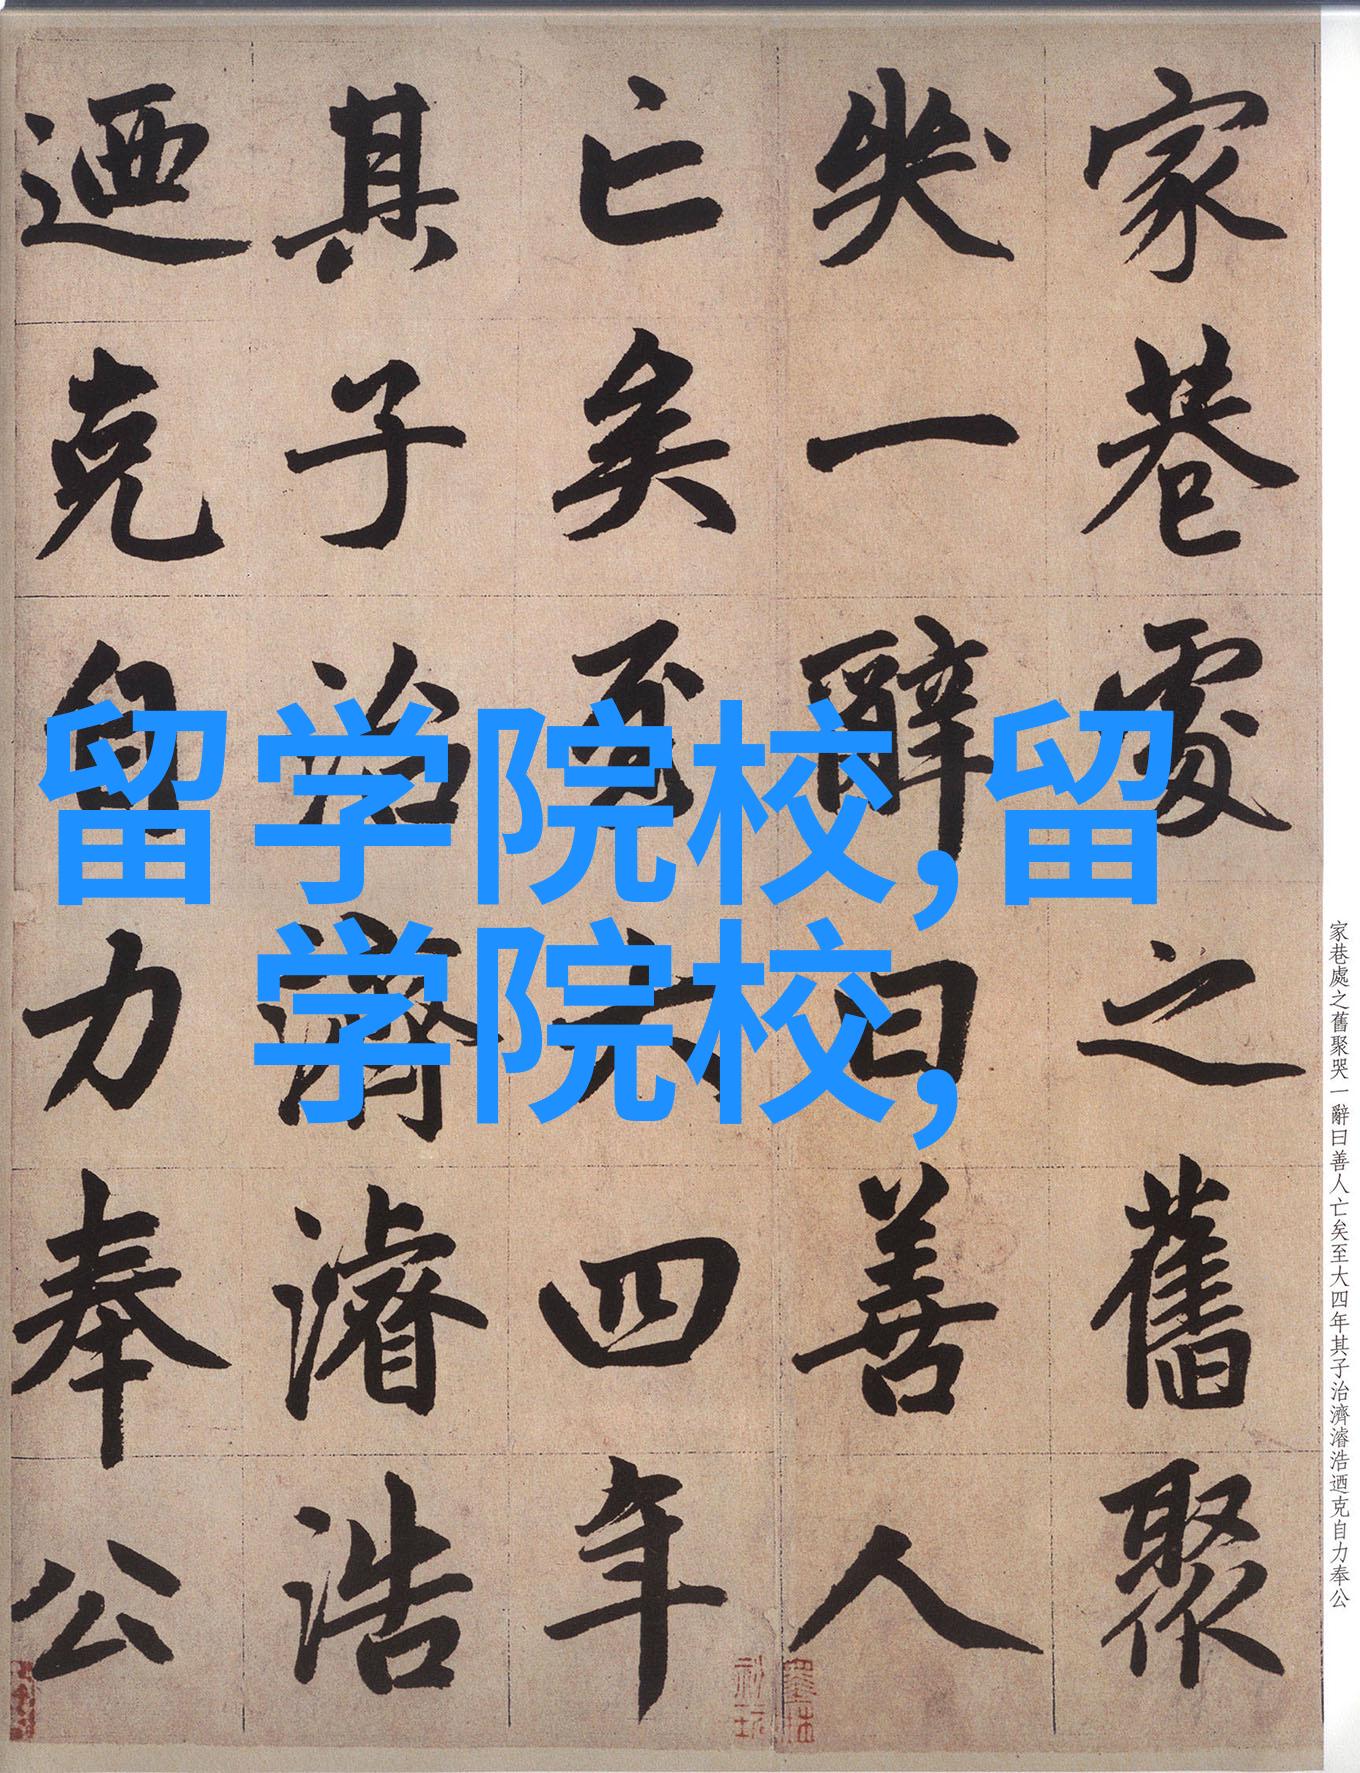 家巷處之舊聚
哭一辭曰善人
亡矣至大四年
其子治濟濬浩
迺克自力奉公
留学院校,留
学院校,
家巷處之舊聚哭一辭曰善人亡矣至大四年其子治濟濬浩迺克自力奉公